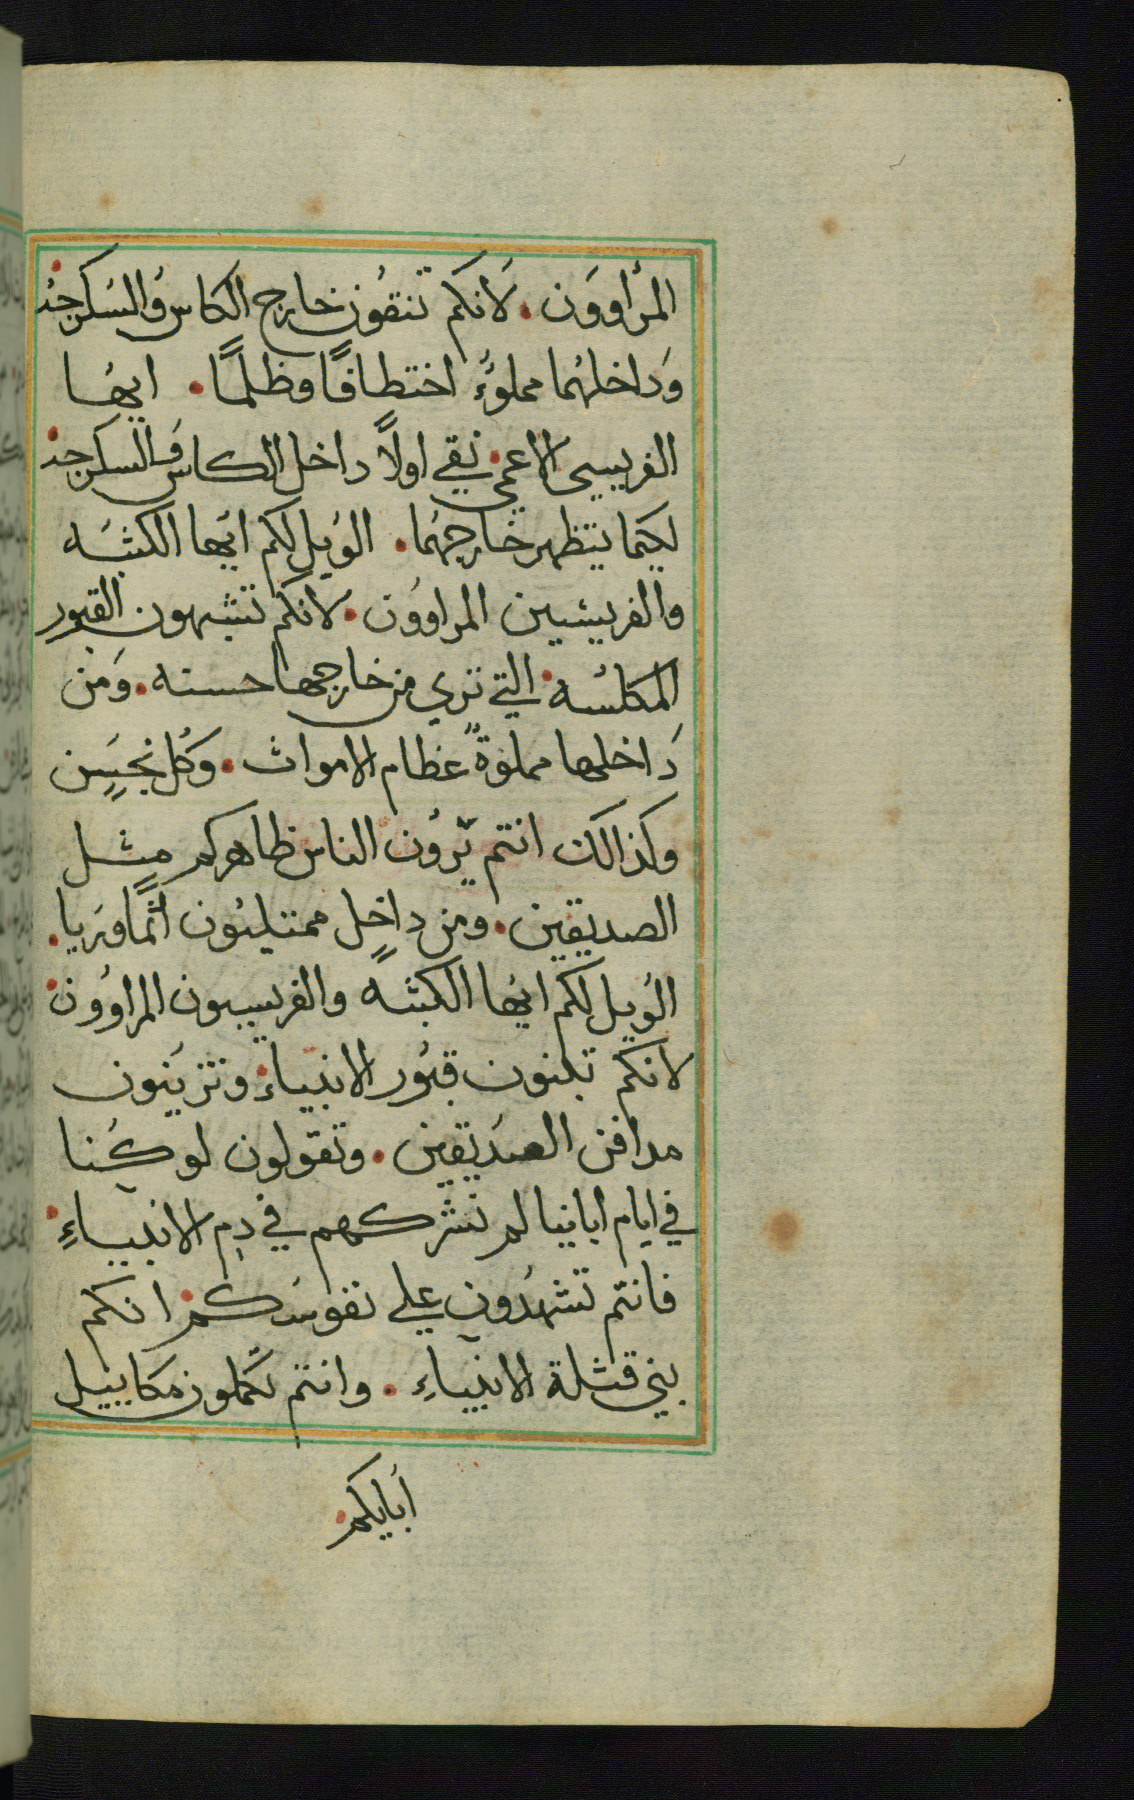 المراوون. لانكم تنقون خارج الكاس والسكرجه
وداخلهما مملوء اختطافًا وظلمًا. ايها
الفريسي الاعمي نقي اولاً داخل الكاس والسكرجه
لكيما يتطهر خارجهما. الويل لكم ايها الكتبه
والفريسيين المراوون. لانكم تشبهون القبور
المكلسه التي تري من خارجها حسنه. ومن
داخلها مملوةً عظام الاموات. وكل نجسٍ
وكذالك انتم يرون الناس ظاهركم مثل
الصديقين. ومن داخل ممتليئون اثمًا وريا.
الويل لكم ايها الكتبه والفريسيون المراوون
لانكم تبنون قبور الانبياء وتزينون
مدافن الصديقين. وتقولون لو كنا
في ايام اباينا لم نشركهم في دم الانبياءِ
فانتم تشهدون علي نفوسكم انكم
بني قتلة الانبياءِ. وانتم تكملون مكاييل
ابايكم